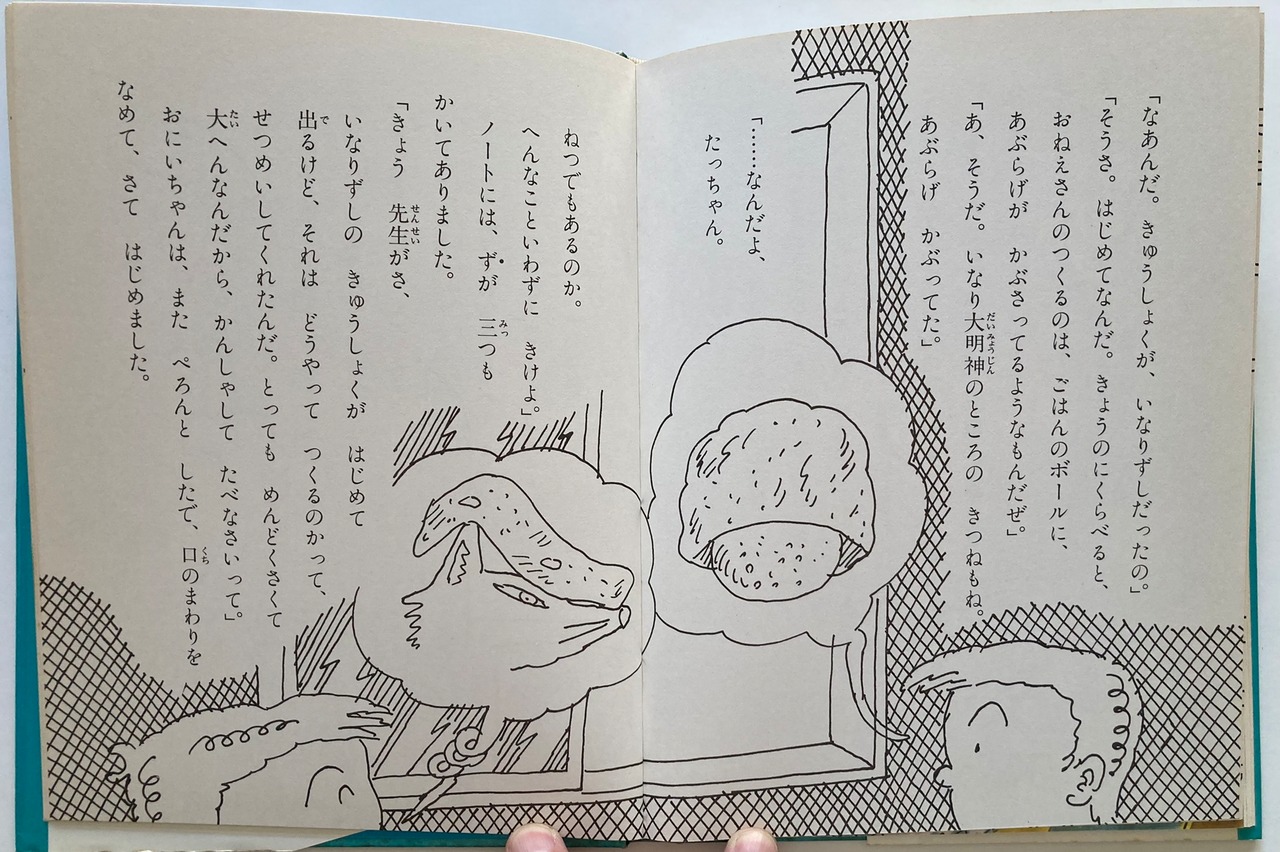 「なあんだ。きゅうしょくが、いなりずしだったの。」
「そうさ。はじめてなんだ。きょうのにくらべると、
おねえさんのつくるのは、ごはんのボールに、
あぶらげが　かぶさってるようなもんだぜ。」
「あ、そうだ。いなり大明神のところの　きつねもね。
あぶらげ　かぶってた。」
「……なんだよ、
たっちゃん。
ねつでもあるのか。
へんなこといわずに　きけよ。」
ノートには、ずが　三つも
かいてありました。
「きょう　先生がさ、
いなりずしの　きゅうしょくが　はじめて
出るけど、それは　どうやって　つくるのかって、
せつめいしてくれたんだ。とっても　めんどくさくて
大へんなんだから、かんしゃして　たべなさいって。」
おにいちゃんは、また　ぺろんと　したで、口のまわりを
なめて、さて　はじめました。